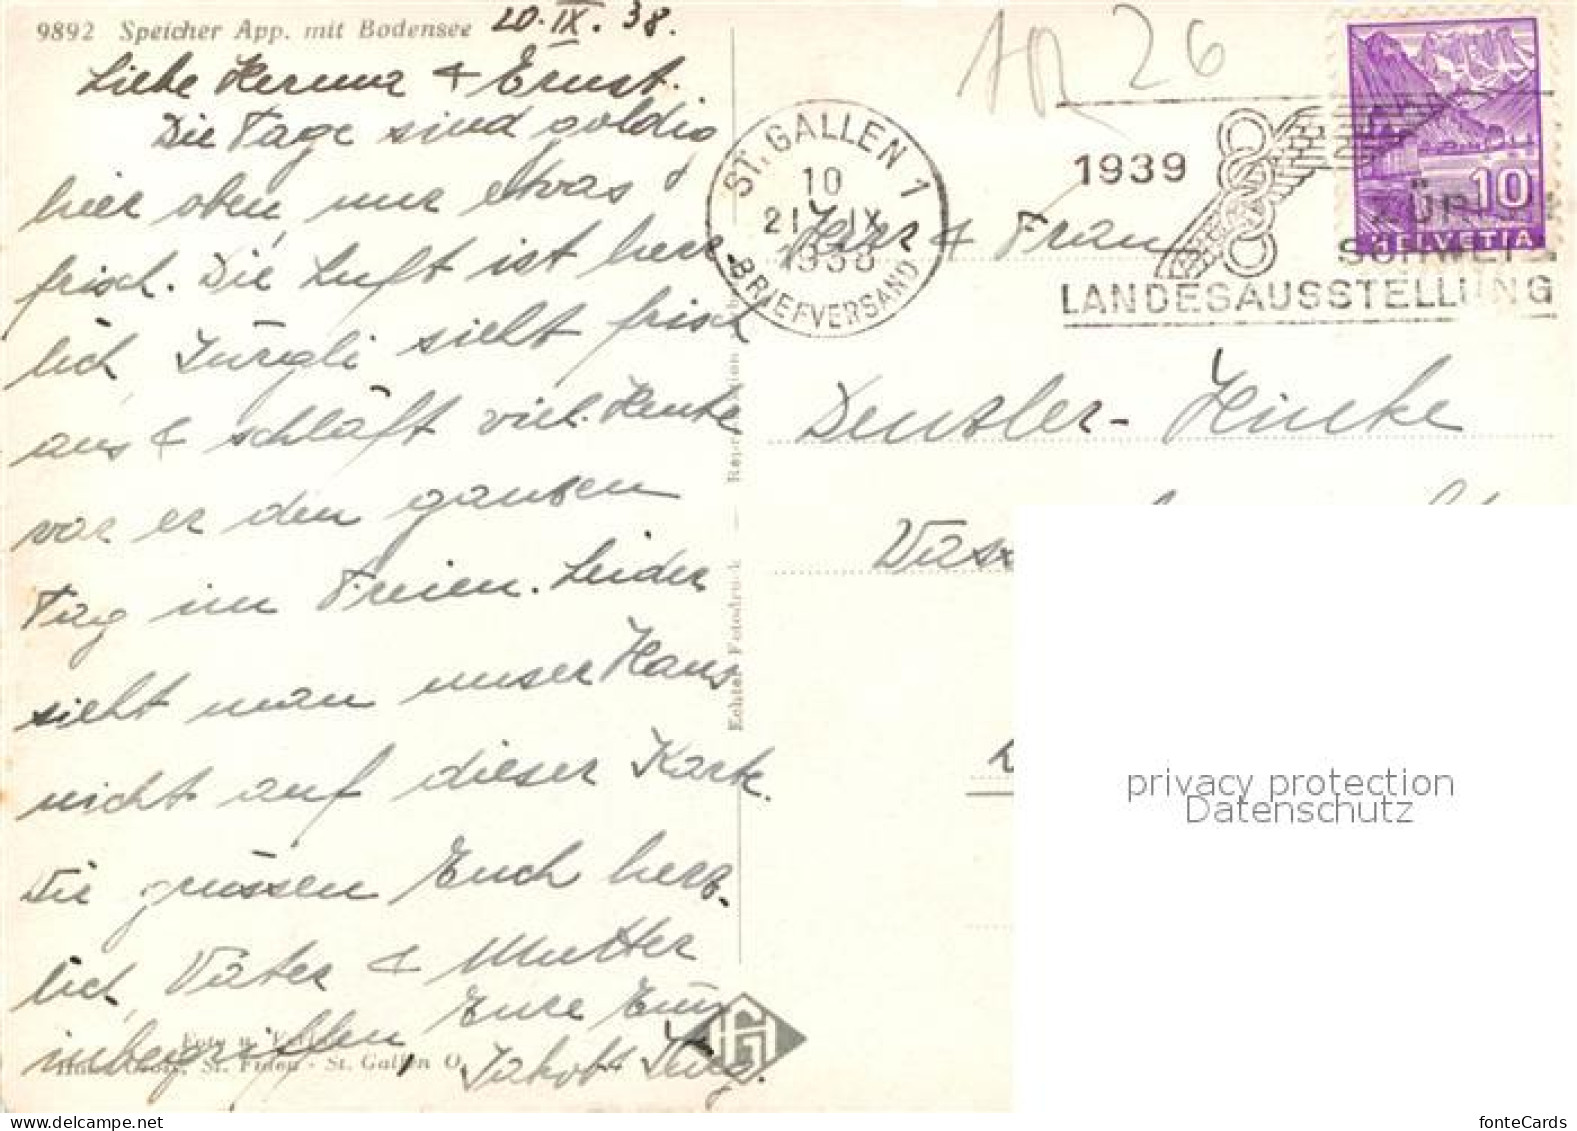 9892 Speicher App. mit Bodensee 20. IX. 38.
Liebe & Ernst.
Die Tage sind goldig
hier oben, nur etwas
frisch. Die Luft ist herr
lich, Jürgli sieht frisch
aus & schläft viel. Heute
war er den ganzen
Tag im Freien. Leider
sieht man unser Haus
nicht auf dieser Karte.
Wir grüssen Euch herz-
lich, Vater & Mutter
inbegriffen, Eure
Jakob
Foto u. Verlag
St. Gallen O.
Echter Fotodruck — Reproduktion
HG
AR 26
ST. GALLEN 1
10
21. IX
1938
BRIEFVERSAND
1939
ZÜRICH
SCHWEIZ.
LANDESAUSSTELLUNG
10
HELVETIA
Herr & Frau
Denzler-Hinke
privacy protection
Datenschutz
fonteCards